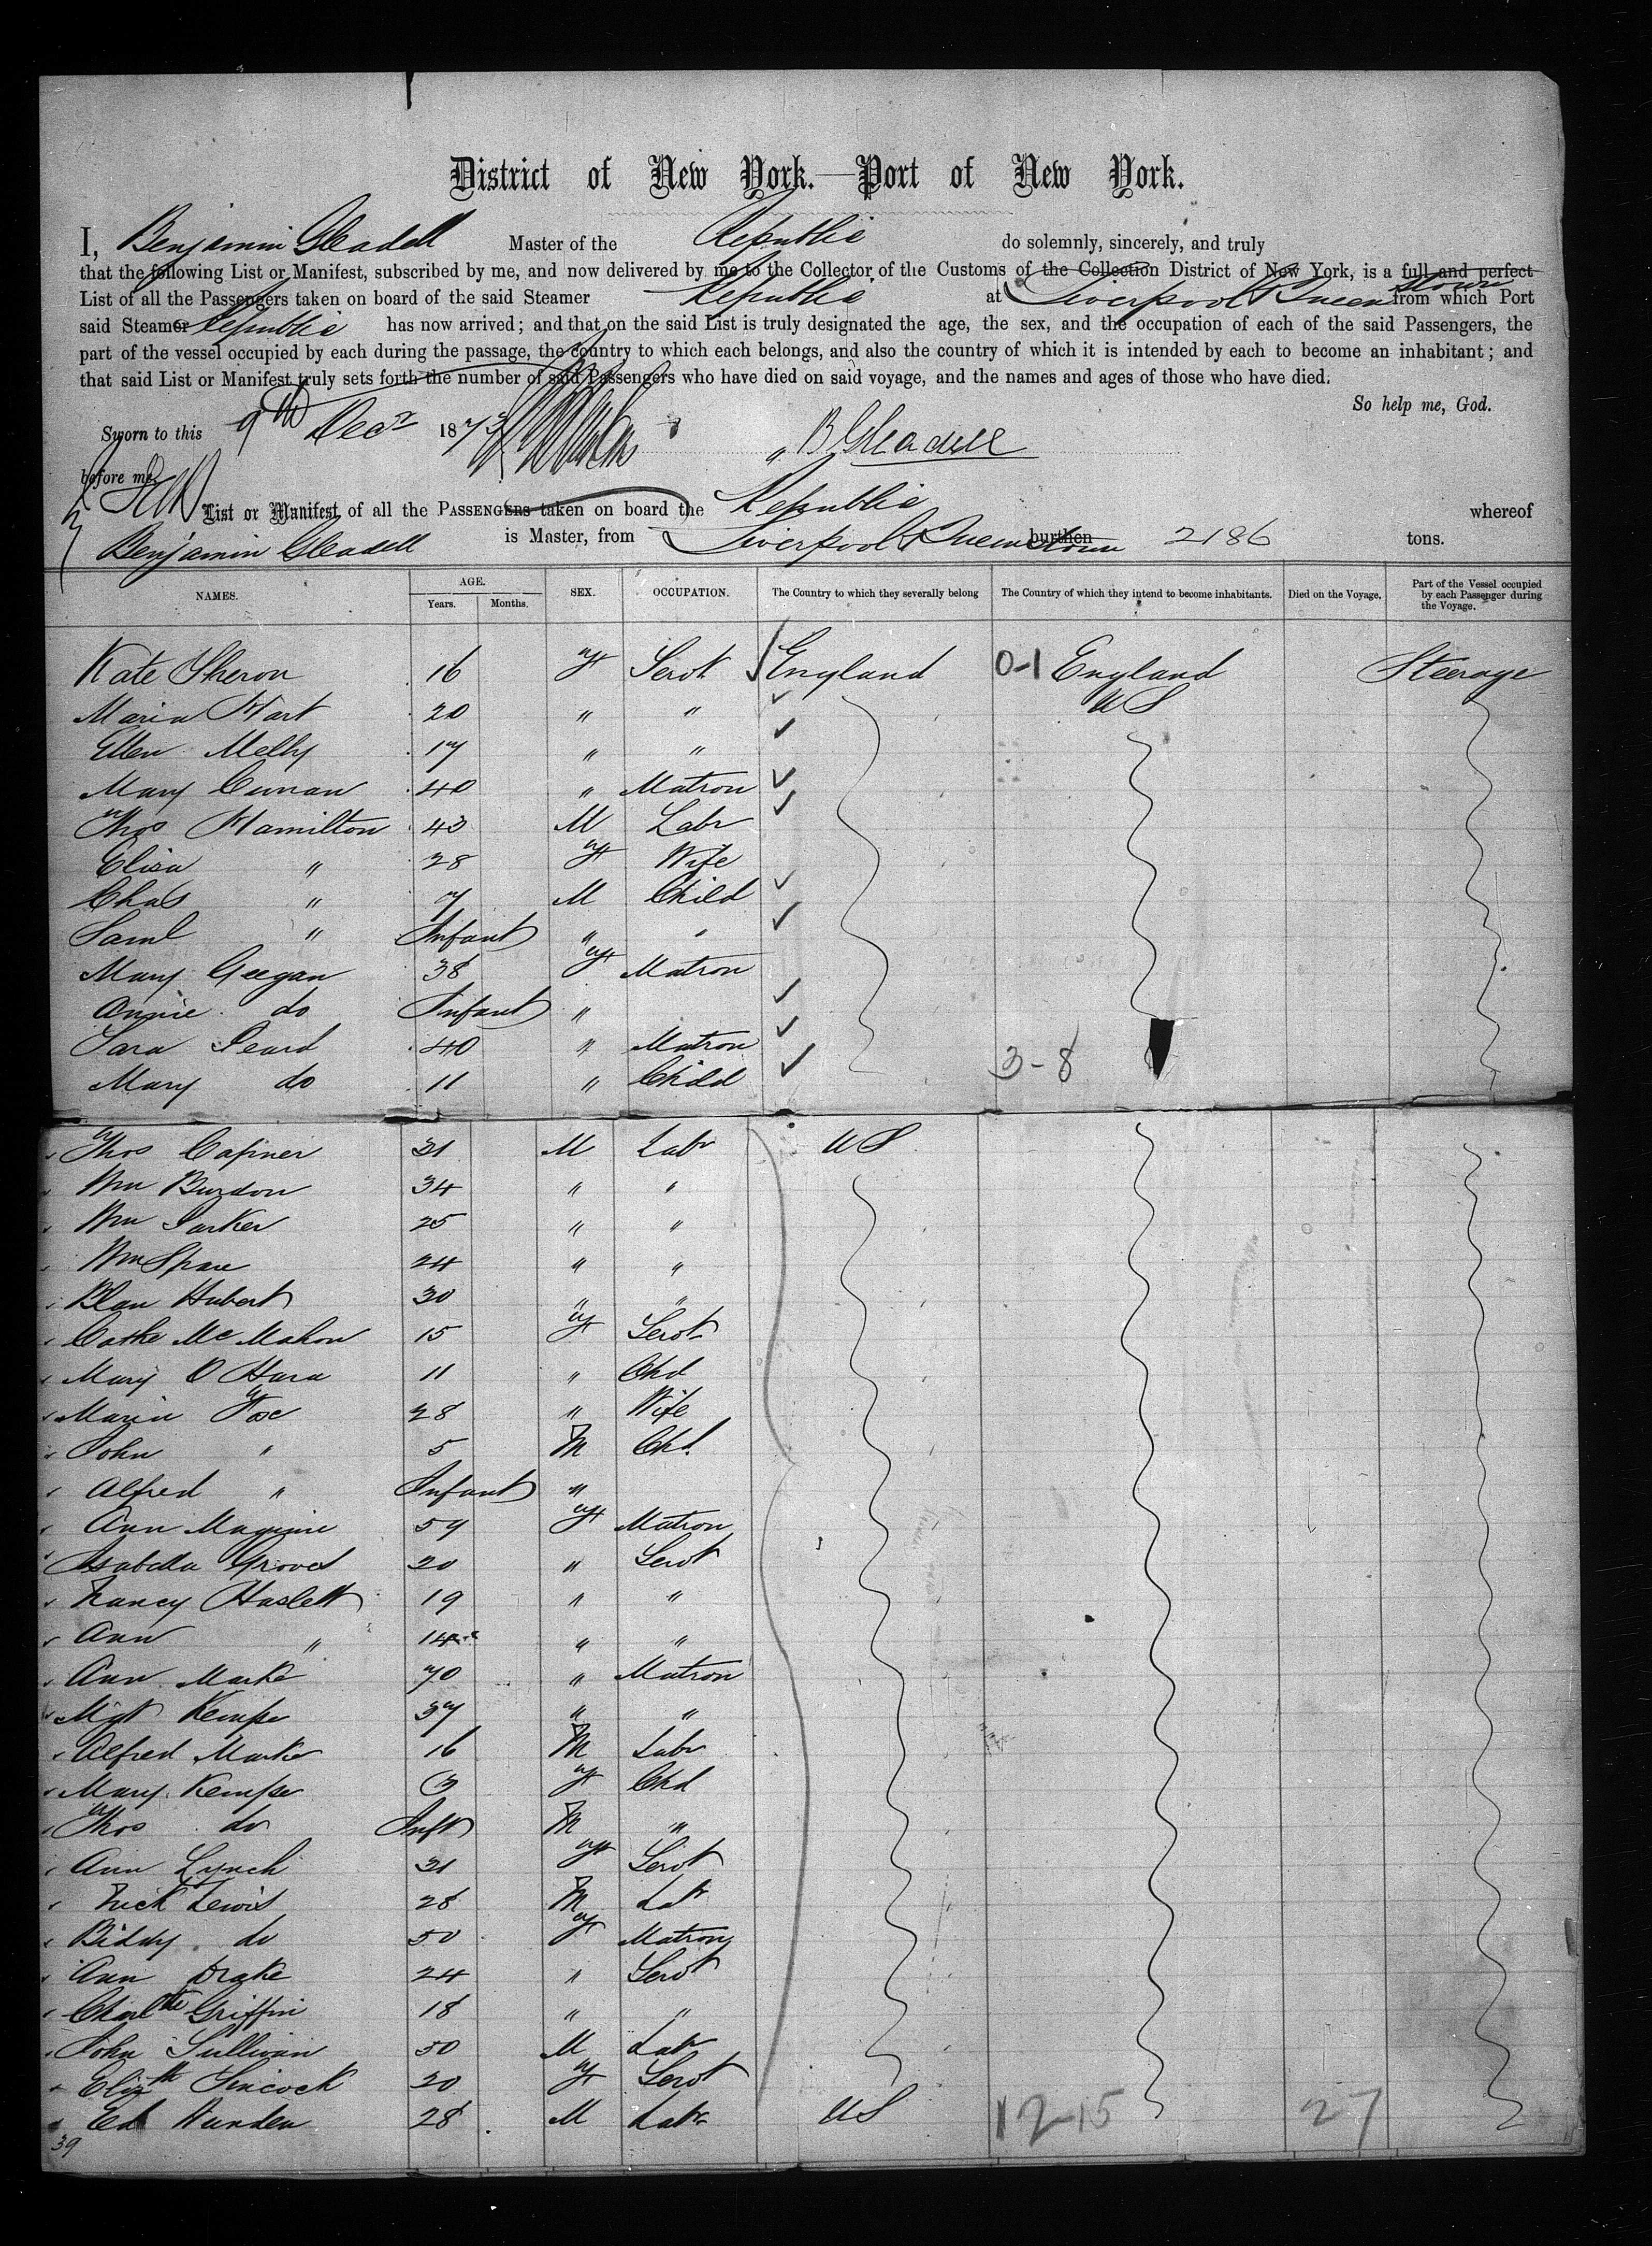 District of New York.—Port of New York.
I, Benjamin Gleadell Master of the Republic do solemnly, sincerely, and truly
that the following List or Manifest, subscribed by me, and now delivered by me to the Collector of the Customs of the Collection District of New York, is a full and perfect
List of all the Passengers taken on board of the said Steamer Republic at Liverpool & Queenstown from which Port
said Steamer Republic has now arrived; and that on the said List is truly designated the age, the sex, and the occupation of each of the said Passengers, the
part of the vessel occupied by each during the passage, the country to which each belongs, and also the country of which it is intended by each to become an inhabitant; and
that said List or Manifest truly sets forth the number of said Passengers who have died on said voyage, and the names and ages of those who have died.
So help me, God.
Sworn to this 9th Decr 1873 B Gleadell
before me
List or Manifest of all the PASSENGERS taken on board the Republic whereof
Benjamin Gleadell is Master, from Liverpool & Queenstown burthen 2186 tons.
NAMES. AGE. Years. Months. SEX. OCCUPATION. The Country to which they severally belong The Country of which they intend to become inhabitants. Died on the Voyage. Part of the Vessel occupied by each Passenger during the Voyage.
Kate Sheron 16 F Servt England 0-1 England Steerage
Maria Hart 20 " " US
Ellen Melly 17 " "
Mary Curran 40 " Matron
Thos Hamilton 43 M Labr
Eliza " 28 F Wife
Chas " 7 M Child
Saml " Infant " "
Mary Geegan 38 F Matron
Annie do Infant "
Sara Peard 40 " Matron
Mary do 11 " Child 3-8
Thos 31 M Labr US
Wm Burdon 34 " "
Wm Parker 25 " "
Wm Spare 24 " "
Hubert 30 " "
Cathe Mc Mahon 15 F Servt
Mary O Hara 11 " Chd
Maria Fox 28 " Wife
John " 5 M Chd
Alfred " Infant "
Ann Maginie 57 F Matron
Isabella Groves 20 " Servt
Nancy Haslett 19 " "
Ann " 14 " "
Ann Marke 70 " Matron
Mgt Kempe 37 " "
Alfred Marke 16 M Labr
Mary Kempe 3 F Chd
Thos do Inft M "
Ann Lynch 31 F Servt
Nick Lewis 28 M Labr
Biddy do 50 F Matron
Ann Drake 24 " Servt
Charltte Griffin 18 " "
John Sullivan 50 M Labr
Elizth Sincock 20 F Servt
Ed Hunden 28 M Labr US 12-15 27
39